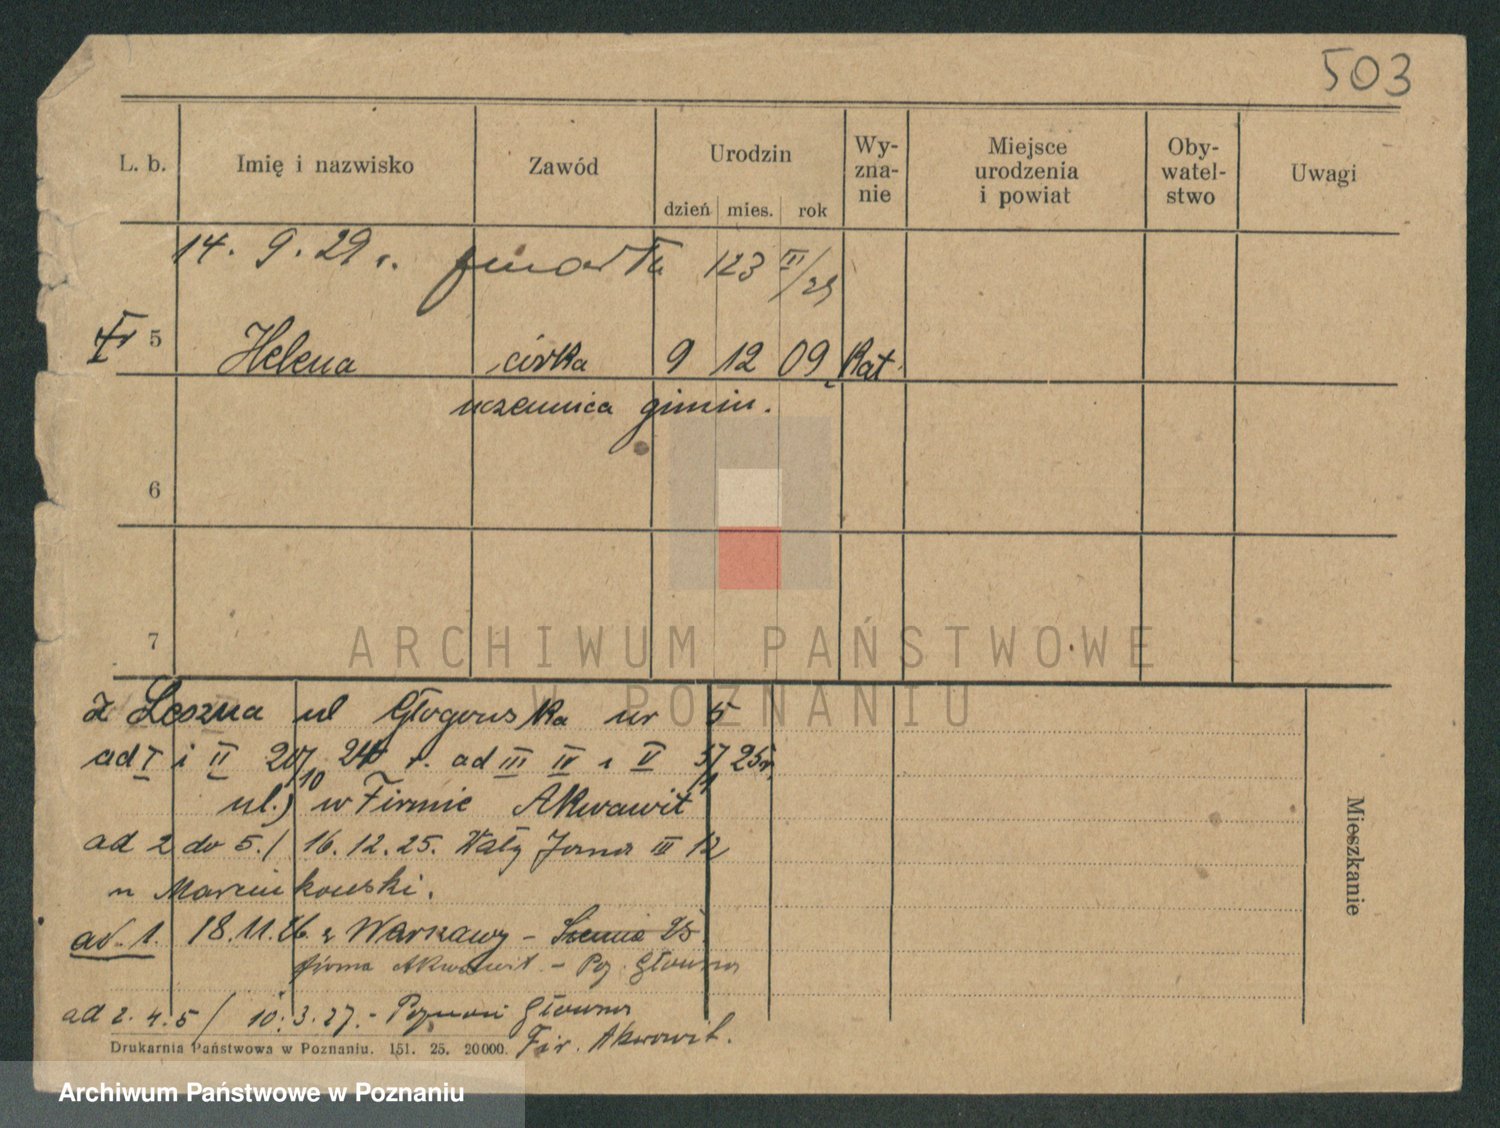 503
L. b. Imię i nazwisko Zawód Urodzin Wy-zna-nie Miejsce urodzenia i powiat Oby-watel-stwo Uwagi
dzień mies. rok
14. 9. 29 r. zmarła 123 III/29
5 Helena córka 9 12 09 Kat.
uczennica gimn.
6
7
z Leszna ul Głogowska nr 5
ad I i II 20/10 24 r. ad III IV i V 5/1 25 r.
ul.) w Firmie Akwawit
ad 2 do 5./ 16. 12. 25. Wały Jana III 12
u Marcinkowski.
ad. 1. 18. 11. 26 z Warszawy - Sienna 25.
firma Akwawit - Poz. Główna
ad 2. 4. 5/ 10. 3. 27. - Poznań Główna
Fir. Akwawit.
Mieszkanie
Drukarnia Państwowa w Poznaniu. 151. 25. 20000.
ARCHIWUM PAŃSTWOWE
W POZNANIU
Archiwum Państwowe w Poznaniu